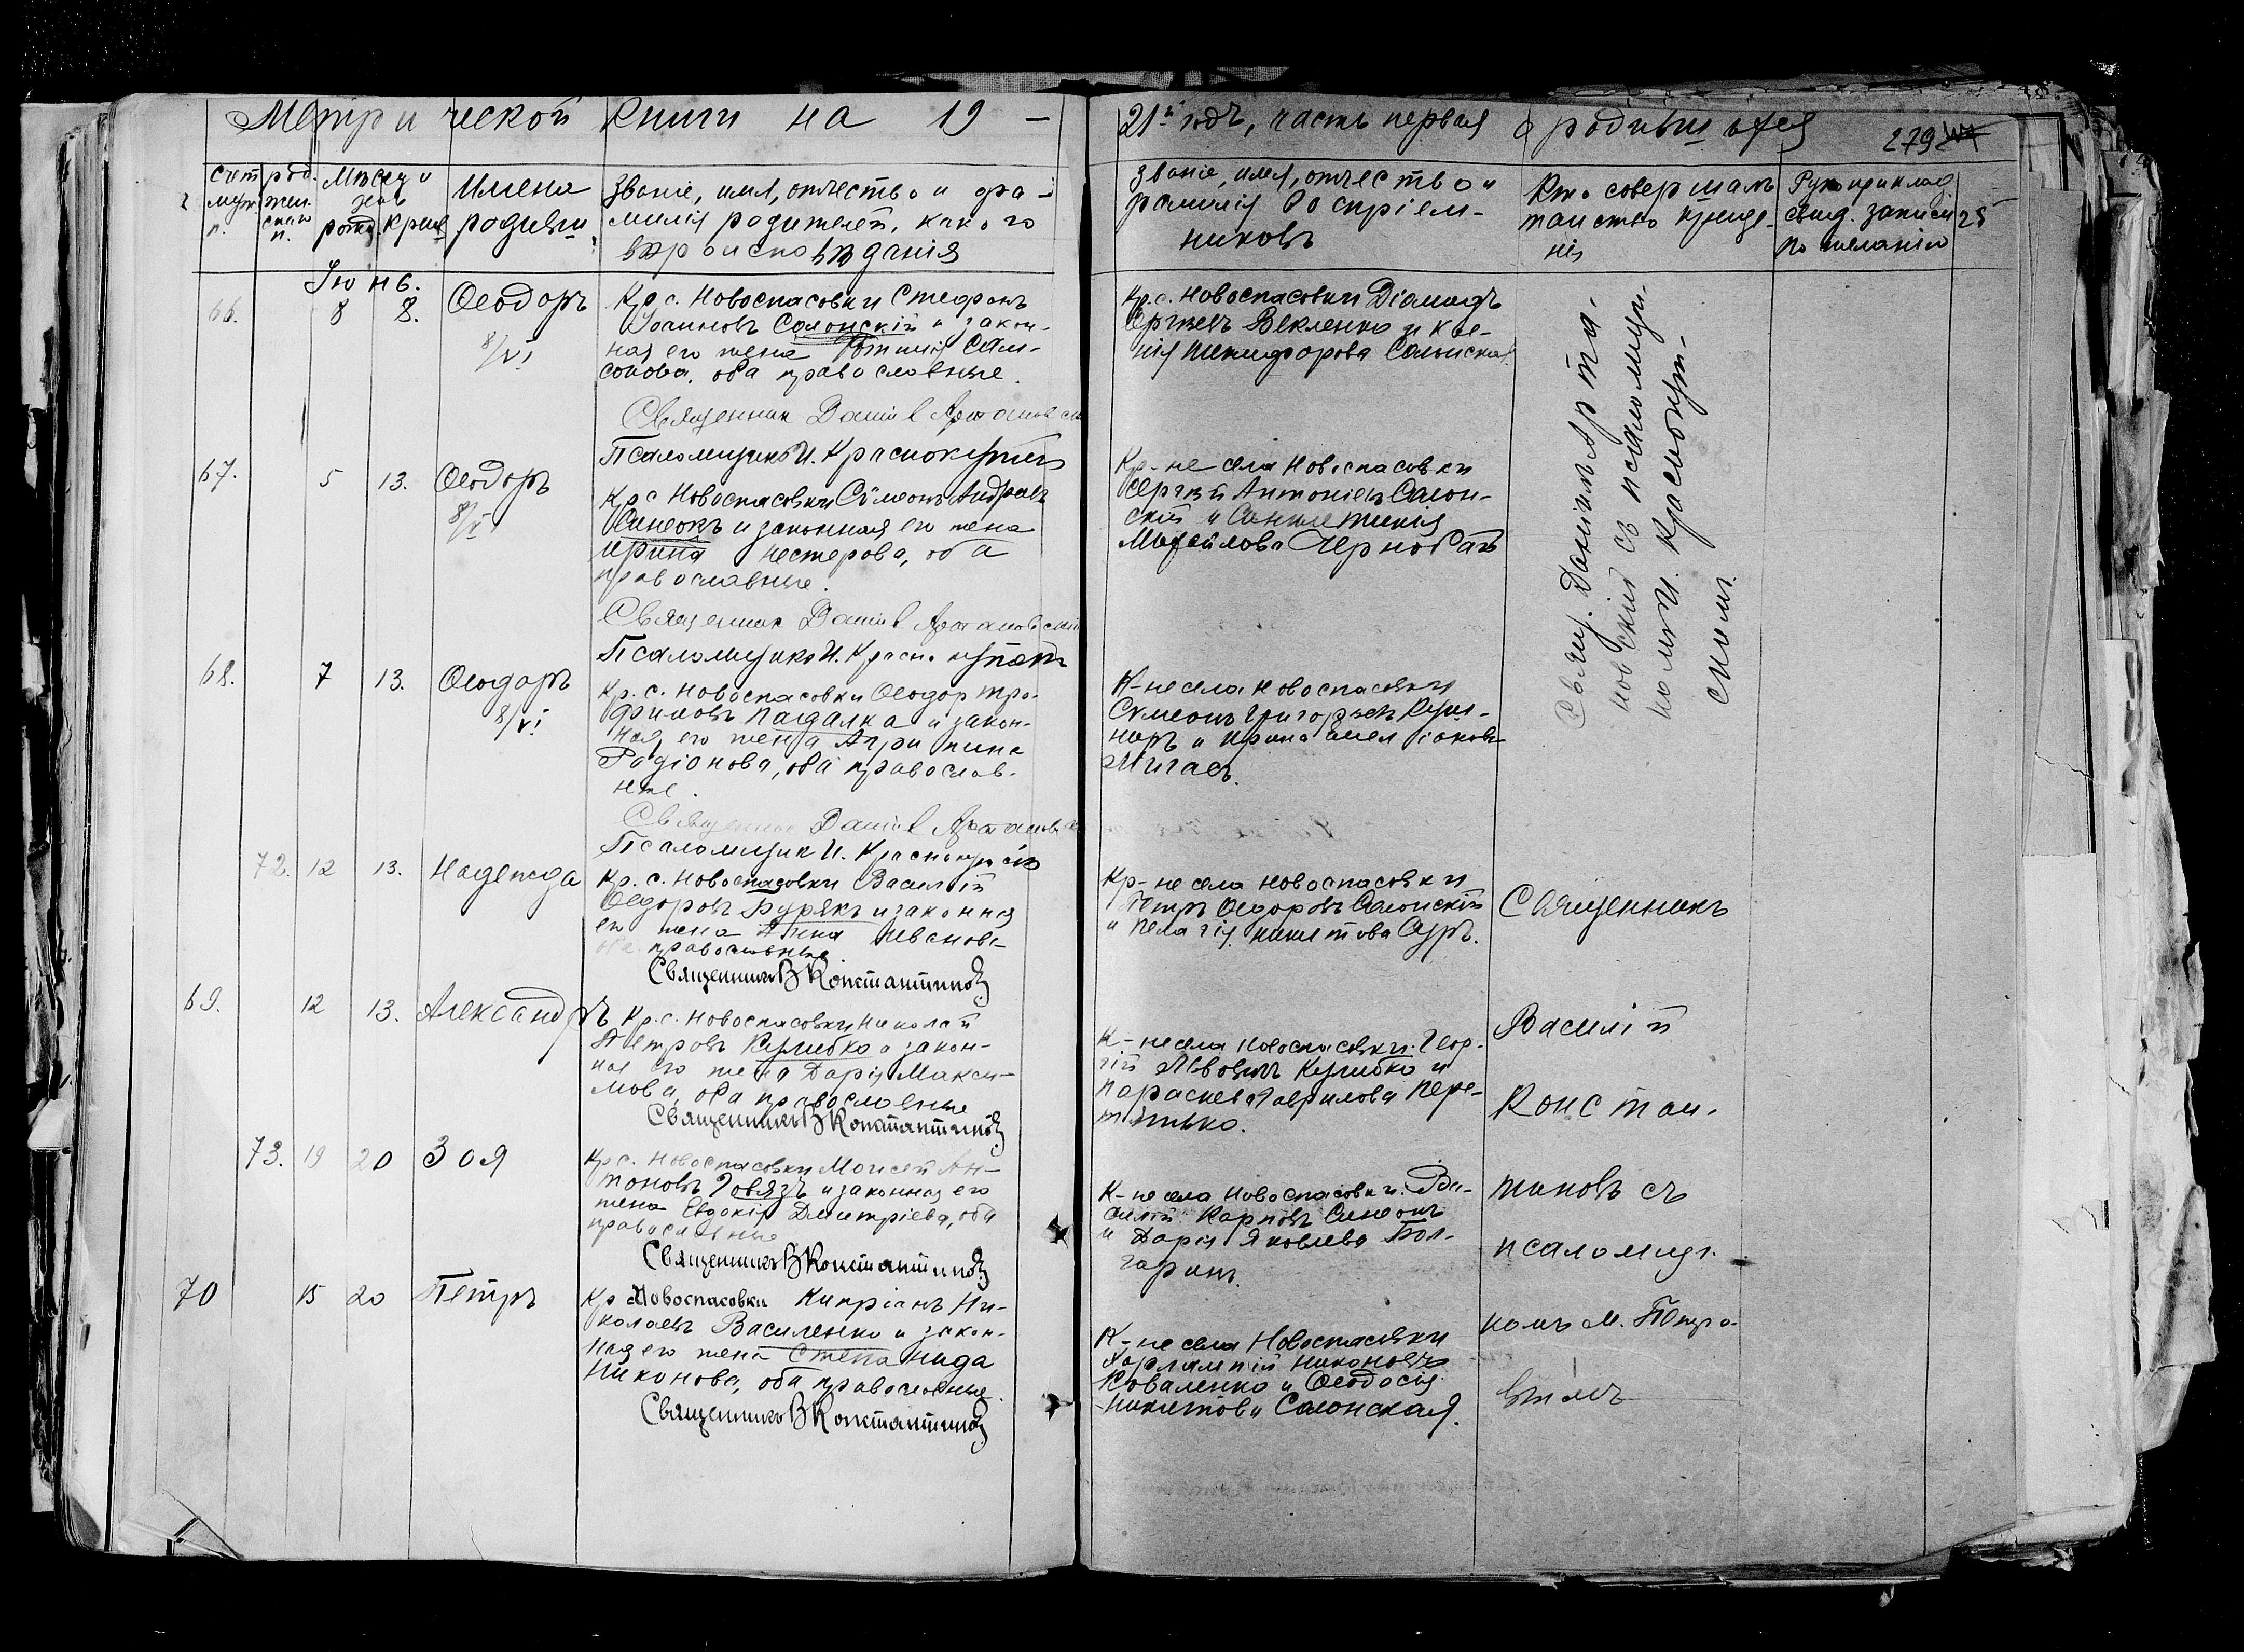 Метрической книги на 19 –
21й годъ, часть первая о родившихся
279
счет род.
муж. п.
жен. п.
Мѣсяц и день
рожд. крещ
Имена родивш.
Званіе, имя, отчество и фа-
милія родителей, какого
вѣроисповѣданія
Званіе, имя, отчество и
фамилія воспріем-
никовъ
Кто совершалъ
таинство креще-
нія
Рукоприклад
свид. записи
по желанію
25
Іюнь.
66.
8
8.
Ѳеодоръ
8/VI
Кр. с. Новоспасовки Стефанъ
Іоанновъ Салонскій и закон-
ная его жена
Сам-
сонова, оба православные.
Священник Даниил
Псаломщикъ И. Краснокутскій
Кр. с. Новоспасовки Діамидъ
Векленко и
Никифорова Салонская
Свящ. Даніилъ Арта-
новскій съ псаломщи-
комъ И. Краснокут-
скимъ.
67.
5
13.
Ѳеодоръ
8/VI
Кр. с. Новоспасовки Сѵмеонъ Андреевъ
Синеокъ и законная его жена
Ирина Нестерова, оба
православные.
Священник Даниил Артановский
Псаломщикъ И. Краснокутскій
Кр-не села Новоспасовки
Сергѣй Антоніевъ Салон-
скій и Синклитикія
Михайлова
68.
7
13.
Ѳеодоръ
8/VI
Кр. с. Новоспасовки Ѳеодор Тро-
фимовъ Пащалка и закон-
ная его жена Агрипина
Радіонова, оба православ-
ные.
Священник Даниил
Псаломщик И. Краснокутскій
К-не села Новоспасовки
Сѵмеонъ Григорьевъ Куш-
наръ и Ирина
Мигаль.
72.
12
13.
Надежда
Кр. с. Новоспасовки Василій
Ѳедоровъ Бурякъ и законная
его жена Анна Иванова
оба православные
Священникъ В Константиновъ
Кр-не села Новоспасовки
Петръ Ѳедоровъ Салонскій
и Пелагія Никитова
Священникъ
69.
12
13.
Александръ
Кр. с. Новоспасовки Николай
Петровъ Кулибко и закон-
ная его жена Дарія Макси-
мова, оба православные
Священникъ В Константиновъ
К-не села Новоспасовки Геор-
гій Львовичъ Кулибко и
Параскева Гаврилова Пере-
тятько.
Василій
Констан-
73.
19
20
Зоя
Кр с. Новоспасовки Моисей Ан-
тоновъ Говязъ и законная его
жена Евдокія Дмитріева, оба
православные
Священникъ В Константиновъ
К-не села Новоспасовки: Ва-
силій Карповъ Синеокъ
и Дарія Яковлева Бол-
гаринъ.
тиновъ съ
псаломщи-
70
15
20
Петръ
Кр Новоспасовки Кипріанъ Ни-
колаевъ Василенко и закон-
ная его жена Степанида
Никонова, оба православные.
Священникъ В Константиновъ
К-не села Новоспасовки
Харлампій Никоновъ
Коваленко и Ѳеодосія
Никитова Салонская.
комъ М. Петро-